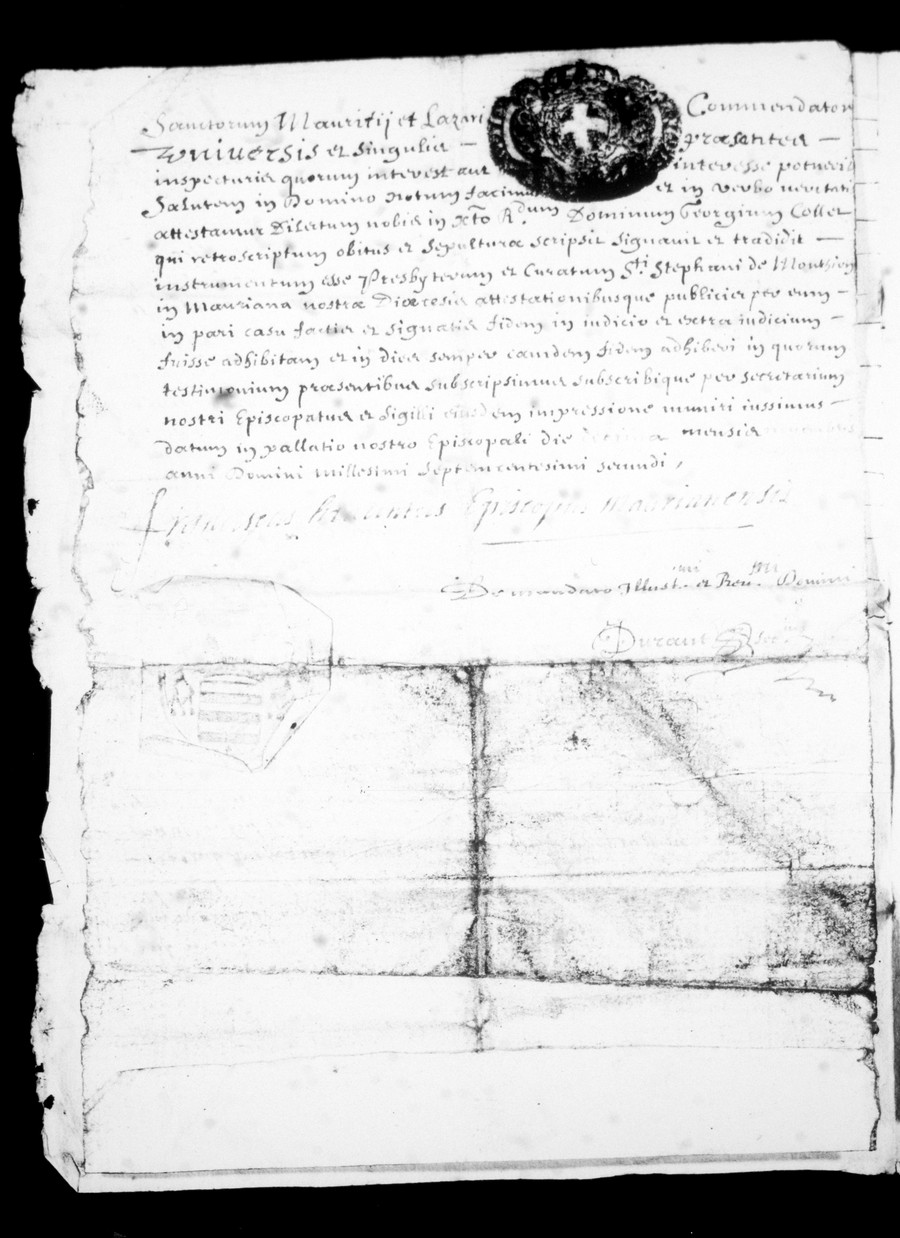 Sanctorum Mauritij et Lazari Commendator
Universis et singulis — præsentes —
inspecturis quorum interest aut interesse potuerit
Salutem in Domino notum facimus et in verbo veritatis
attestamur Dilectum nobis in Xto R.dum Dominum Georgium Collet
qui retroscriptum obitus et sepulturæ scripsit signavit et tradidit —
instrumentum esse Presbyterum et Curatum Sti Stephani de Montsion
in Mauriana nostræ Diœcesis attestationibusque publicis per eum —
in pari casu factis et signatis fidem in iudicio et extra iudicium —
fuisse adhibitam et in dies semper eamdem fidem adhiberi in quorum
testimonium præsentibus subscripsimus subscribique per secretarium
nostri Episcopatus et sigilli eiusdem impressione muniri iussimus —
datum in pallatio nostro Episcopali die decima mensis
anni Domini millesimi septemcentesimi secundi,
Episcopus maurianensis
De mandato Illust.mi et Reu.mi Domini
Durant Secr.